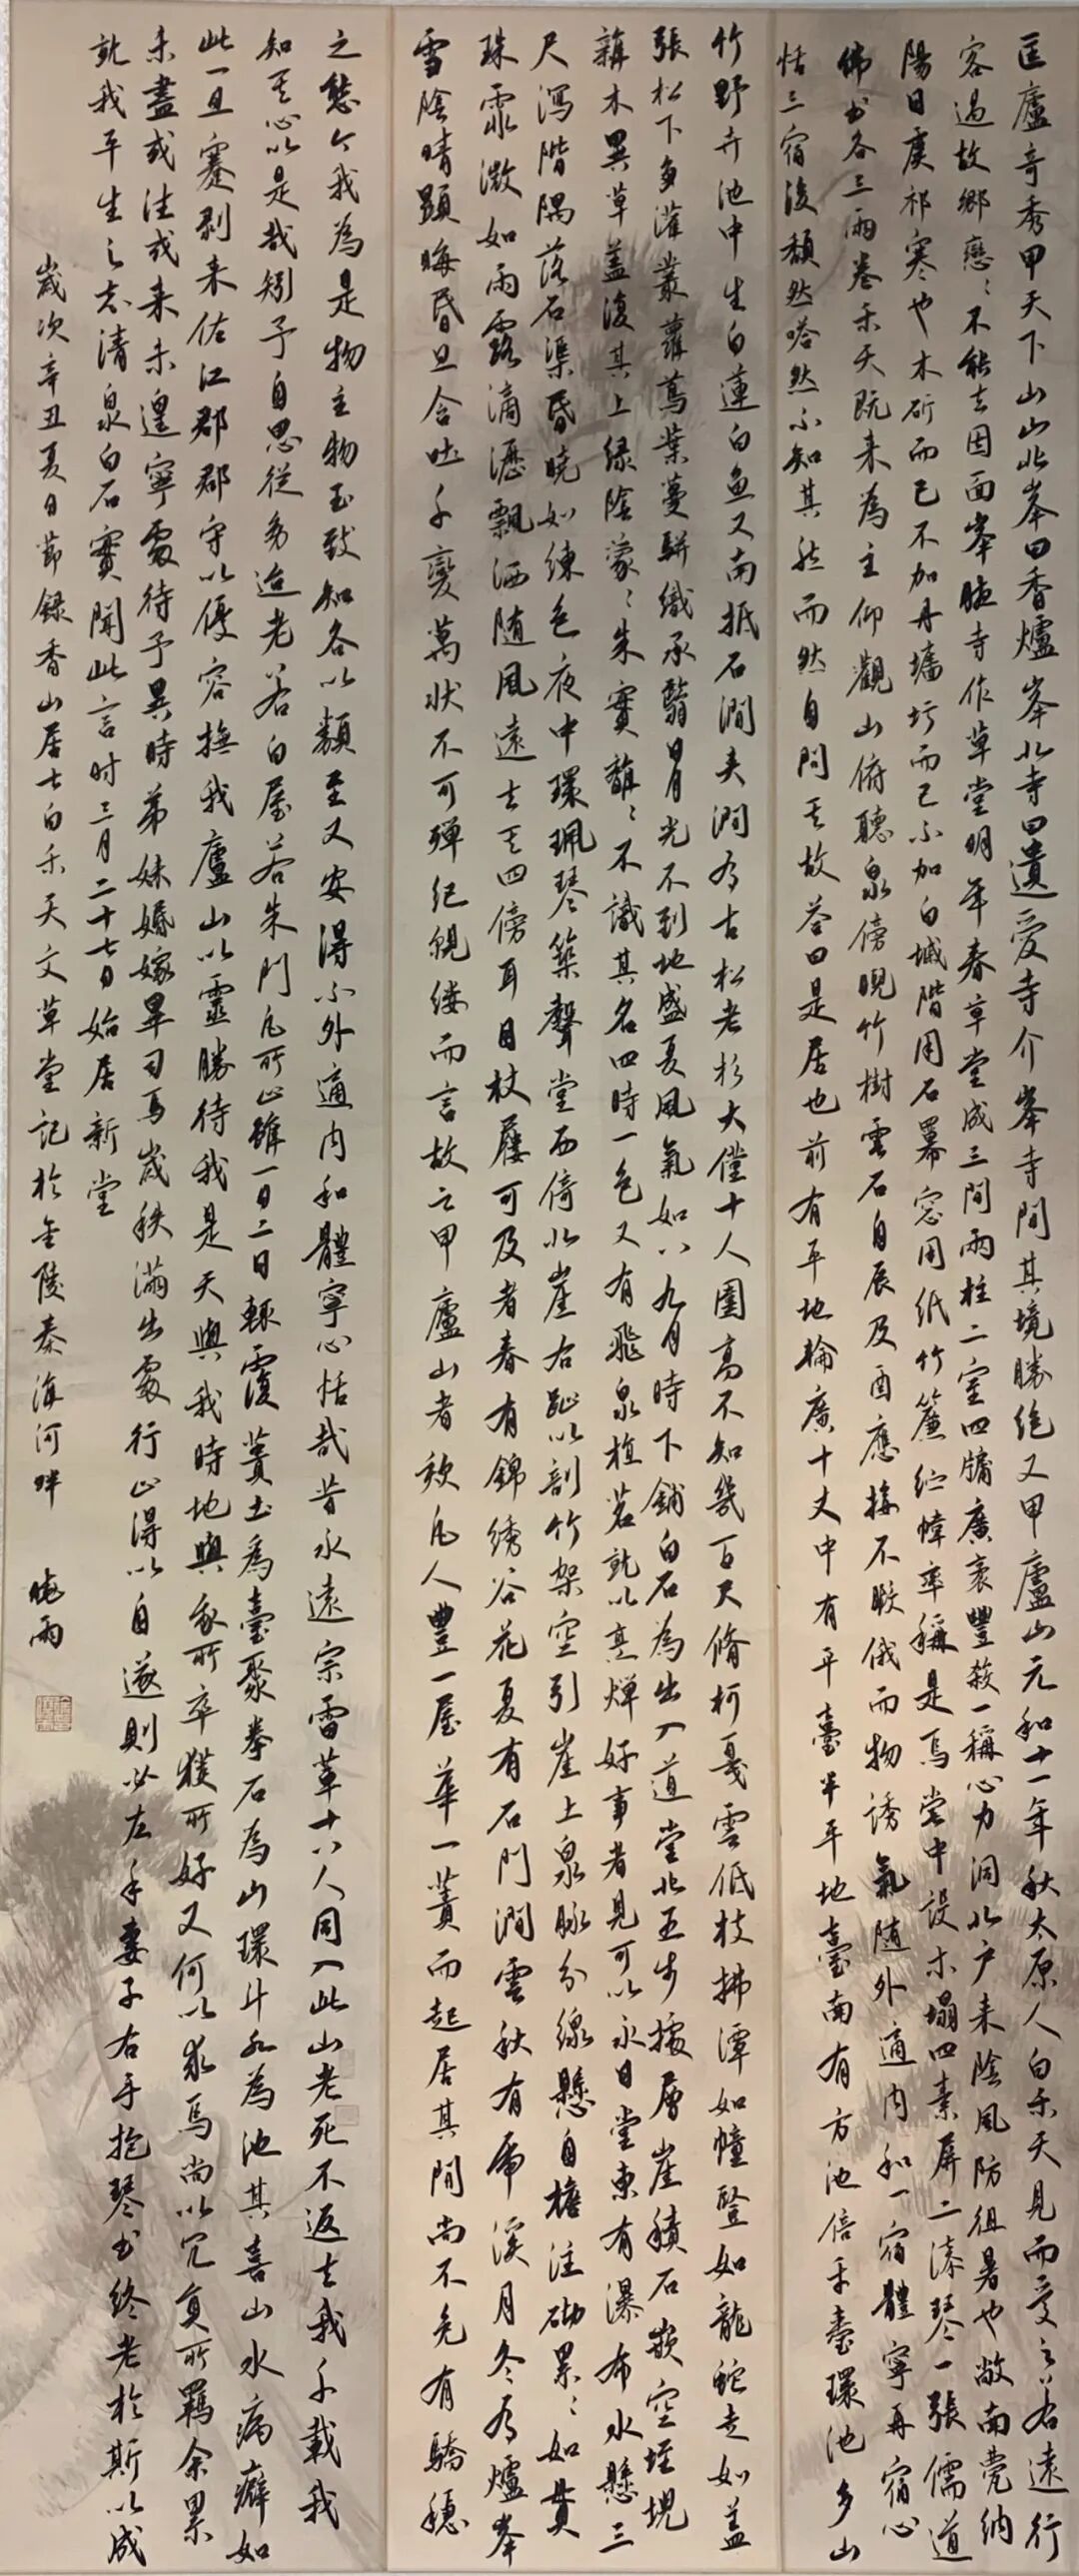 匡廬奇秀甲天下山山北峯曰香爐峯北寺曰遺愛寺介峯寺間其境勝絶又甲廬山元和十一年秋太原人白乐天見而愛之若遠行
客過故鄉戀戀不能去因面峯腋寺作草堂明年春草堂成三間兩柱二室四牖廣袤豐殺一稱心力洞北户来陰風防徂暑也敞南甍納
陽日虞祁寒也木斫而已不加丹墻圬而已不加白墄階用石羃窓用紙竹簾紵幃率稱是焉堂中設木榻四素屏二漆琴一張儒道
佛书各三兩卷乐天既来為主仰觀山俯聽泉傍睨竹樹雲石自辰及酉應接不暇俄而物誘氣随外適内和一宿體寧再宿心
恬三宿後頹然嗒然不知其然而然自問其故荅曰是居也前有平地輪廣十丈中有平臺半平地臺南有方池倍平臺環池多山
竹野卉池中生白蓮白魚又南抵石澗夾澗有古松老杉大僅十人圍高不知幾百尺脩柯戛雲低枝拂潭如幢豎如龍蛇走如蓋
張松下多灌叢蘿蔦葉蔓駢織承翳日月光不到地盛夏風氣如八九月時下鋪白石為出入道堂北五步據層崖積石嵌空垤堄
雜木異草盖復其上緑陰蒙蒙朱實離離不識其名四時一色又有飛泉植茗就以烹燀好事者見可以永日堂東有瀑布水懸三
尺瀉階隅落石渠昏曉如練色夜中環珮琴築聲堂西倚北崖右趾以剖竹架空引崖上泉脉分線懸自檐注砌累累如貫
珠霏微如雨露滴瀝飄洒随風遠去其四傍耳目杖屨可及者春有錦绣谷花夏有石門澗雲秋有虎溪月冬有爐峯
雪陰晴顕晦昏旦含吐千變萬状不可殫纪覼缕而言故云甲廬山者欤凡人豊一屋華一簀而起居其間尚不免有驕穏
之態今我為是物主物至致知各以類至又安得不外適内和體寧心恬哉昔永遠宗雷輩十八人同入此山老死不返去我千載我
知其心以是哉矧予自思從幼迨老若白屋若朱門凡所止雖一日二日輒覆簣土為臺聚拳石為山環斗水為池其喜山水病癖如
此一旦蹇剥来佐江郡郡守以優容撫我廬山以靈勝待我是天與我時地與我所卒獲所好又何以求焉尚以冗員所羈余累
未盡或往或来未遑寧處待予異時弟妹婚嫁畢司馬歲秩滿出處行止得以自遂則必左手妻子右手抱琴书终老於斯以成
就我平生之志清泉白石實聞此言时三月二十七日始居新堂
歲次辛丑夏日節録香山居士白乐天文草堂記於金陵秦淮河畔 曉雨